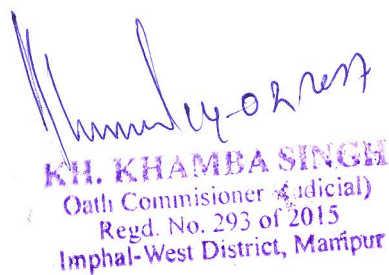 KH. KHAMBA SINGH
Oath Commisioner (Judicial)
Regd. No. 293 of 2015
Imphal-West District, Manipur